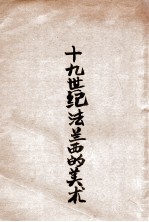 十九世纪法兰西的美术